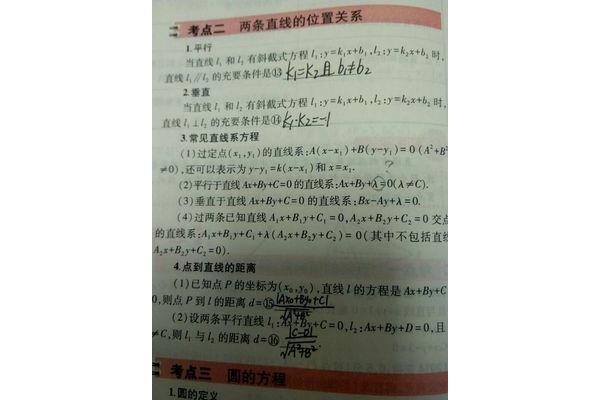 考点二 两条直线的位置关系
1.平行
当直线 l₁ 和 l₂ 有斜截式方程 l₁:y=k₁x+b₁,l₂:y=k₂x+b₂ 时,
直线 l₁∥l₂ 的充要条件是⑬ k₁=k₂且 b₁≠b₂
2.垂直
当直线 l₁ 和 l₂ 有斜截式方程 l₁:y=k₁x+b₁,l₂:y=k₂x+b₂ 时,
直线 l₁⊥l₂ 的充要条件是⑭ k₁·k₂=-1
3.常见直线系方程
(1)过定点(x₁,y₁)的直线系:A(x-x₁)+B(y-y₁)=0(A²+B²
≠0),还可以表示为 y-y₁=k(x-x₁)和 x=x₁.
?
(2)平行于直线 Ax+By+C=0 的直线系:Ax+By+λ=0(λ≠C).
(3)垂直于直线 Ax+By+C=0 的直线系:Bx-Ay+λ=0.
(4)过两条已知直线 A₁x+B₁y+C₁=0,A₂x+B₂y+C₂=0 交点
的直线系:A₁x+B₁y+C₁+λ(A₂x+B₂y+C₂)=0(其中不包括直线
A₂x+B₂y+C₂=0).
4.点到直线的距离
(1)已知点 P 的坐标为(x₀,y₀),直线 l 的方程是 Ax+By+C
0,则点 P 到 l 的距离 d=⑮ |Ax₀+By₀+C|/√A²+B²
(2)设两条平行直线 l₁:Ax+By+C=0,l₂:Ax+By+D=0,且
≠C,则 l₁ 与 l₂ 的距离 d=⑯ |C-D|/√A²+B²
考点三 圆的方程
1.圆的定义